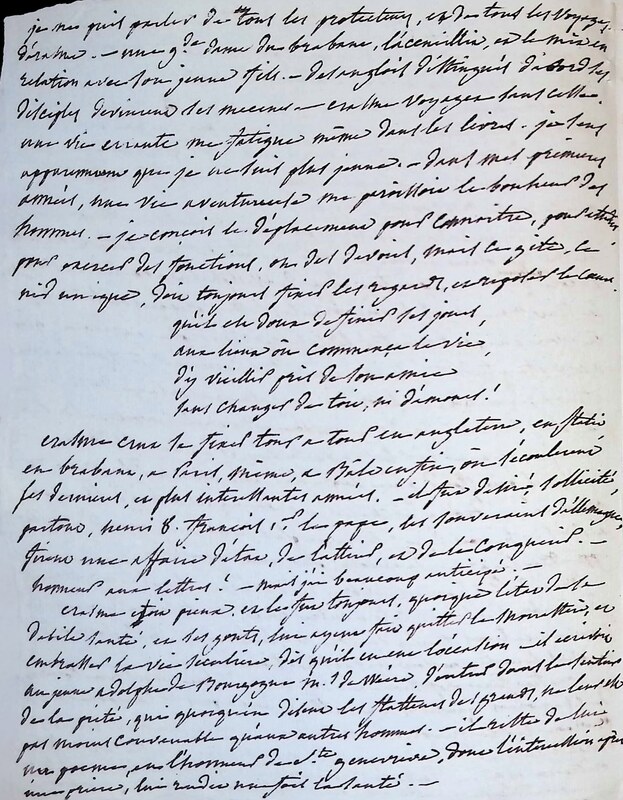 je ne puis parler de tous les protecteurs, et de tous les voyages
d'erasme. — une gde dame du brabant, l'accueillit, et le mit en
relation avec son jeune fils. — des anglois distingués d'abord ses
disciples devinrent ses mecenes — erasme voyagea sans cesse.
une vie errante me fatigue même dans les livres. — je sens
apparemment que je ne suis plus jeune. — dans mes premieres
années, une vie aventureuse me paroissoit le bonheur des
hommes. — je conçois le déplacement pour connoitre, pour
pour exercer des fonctions, ou des devoirs, mais ce gîte, ce
nid unique, doit toujours fixer les regards, et reposer le coeur.
qu'il est doux de finir ses jours,
aux lieux où commença la vie,
d'y vieillir près de son amie
sans changer de toit, ni d'amours!
erasme crut se fixer tour a tour en angleterre, en italie
en brabant, a Paris, même, a Bâle enfin, où s'écoulerent
ses dernieres, et plus interessantes années. — il fut desiré, sollicité
partout, henri 8. françois 1er le pape, les souverains d'allemagne,
firent une affaire d'état, de l'attirer, et de le conquerir. —
honneur aux lettres! — mais j'ai beaucoup anticipé. —
erasme étoit pieux, et le fut toujours, quoique l'état de sa
debile santé, et ses gouts, lui ayent fait quitter le monastère, et
embrasser la vie seculiere, dès qu'il en eut l'occasion — il ecrivoit
au jeune adolphe de Bourgogne m.is de Weere d'entrer dans le sentier
de la pieté, qui quoiqu'en disent les flatteurs des grands, ne leur est
pas moins convenable qu'aux autres hommes. — il reste de lui,
un poeme, en l'honneur de ste genevieve, dont l'intercession après
une priere, lui rendit une fois la santé. —